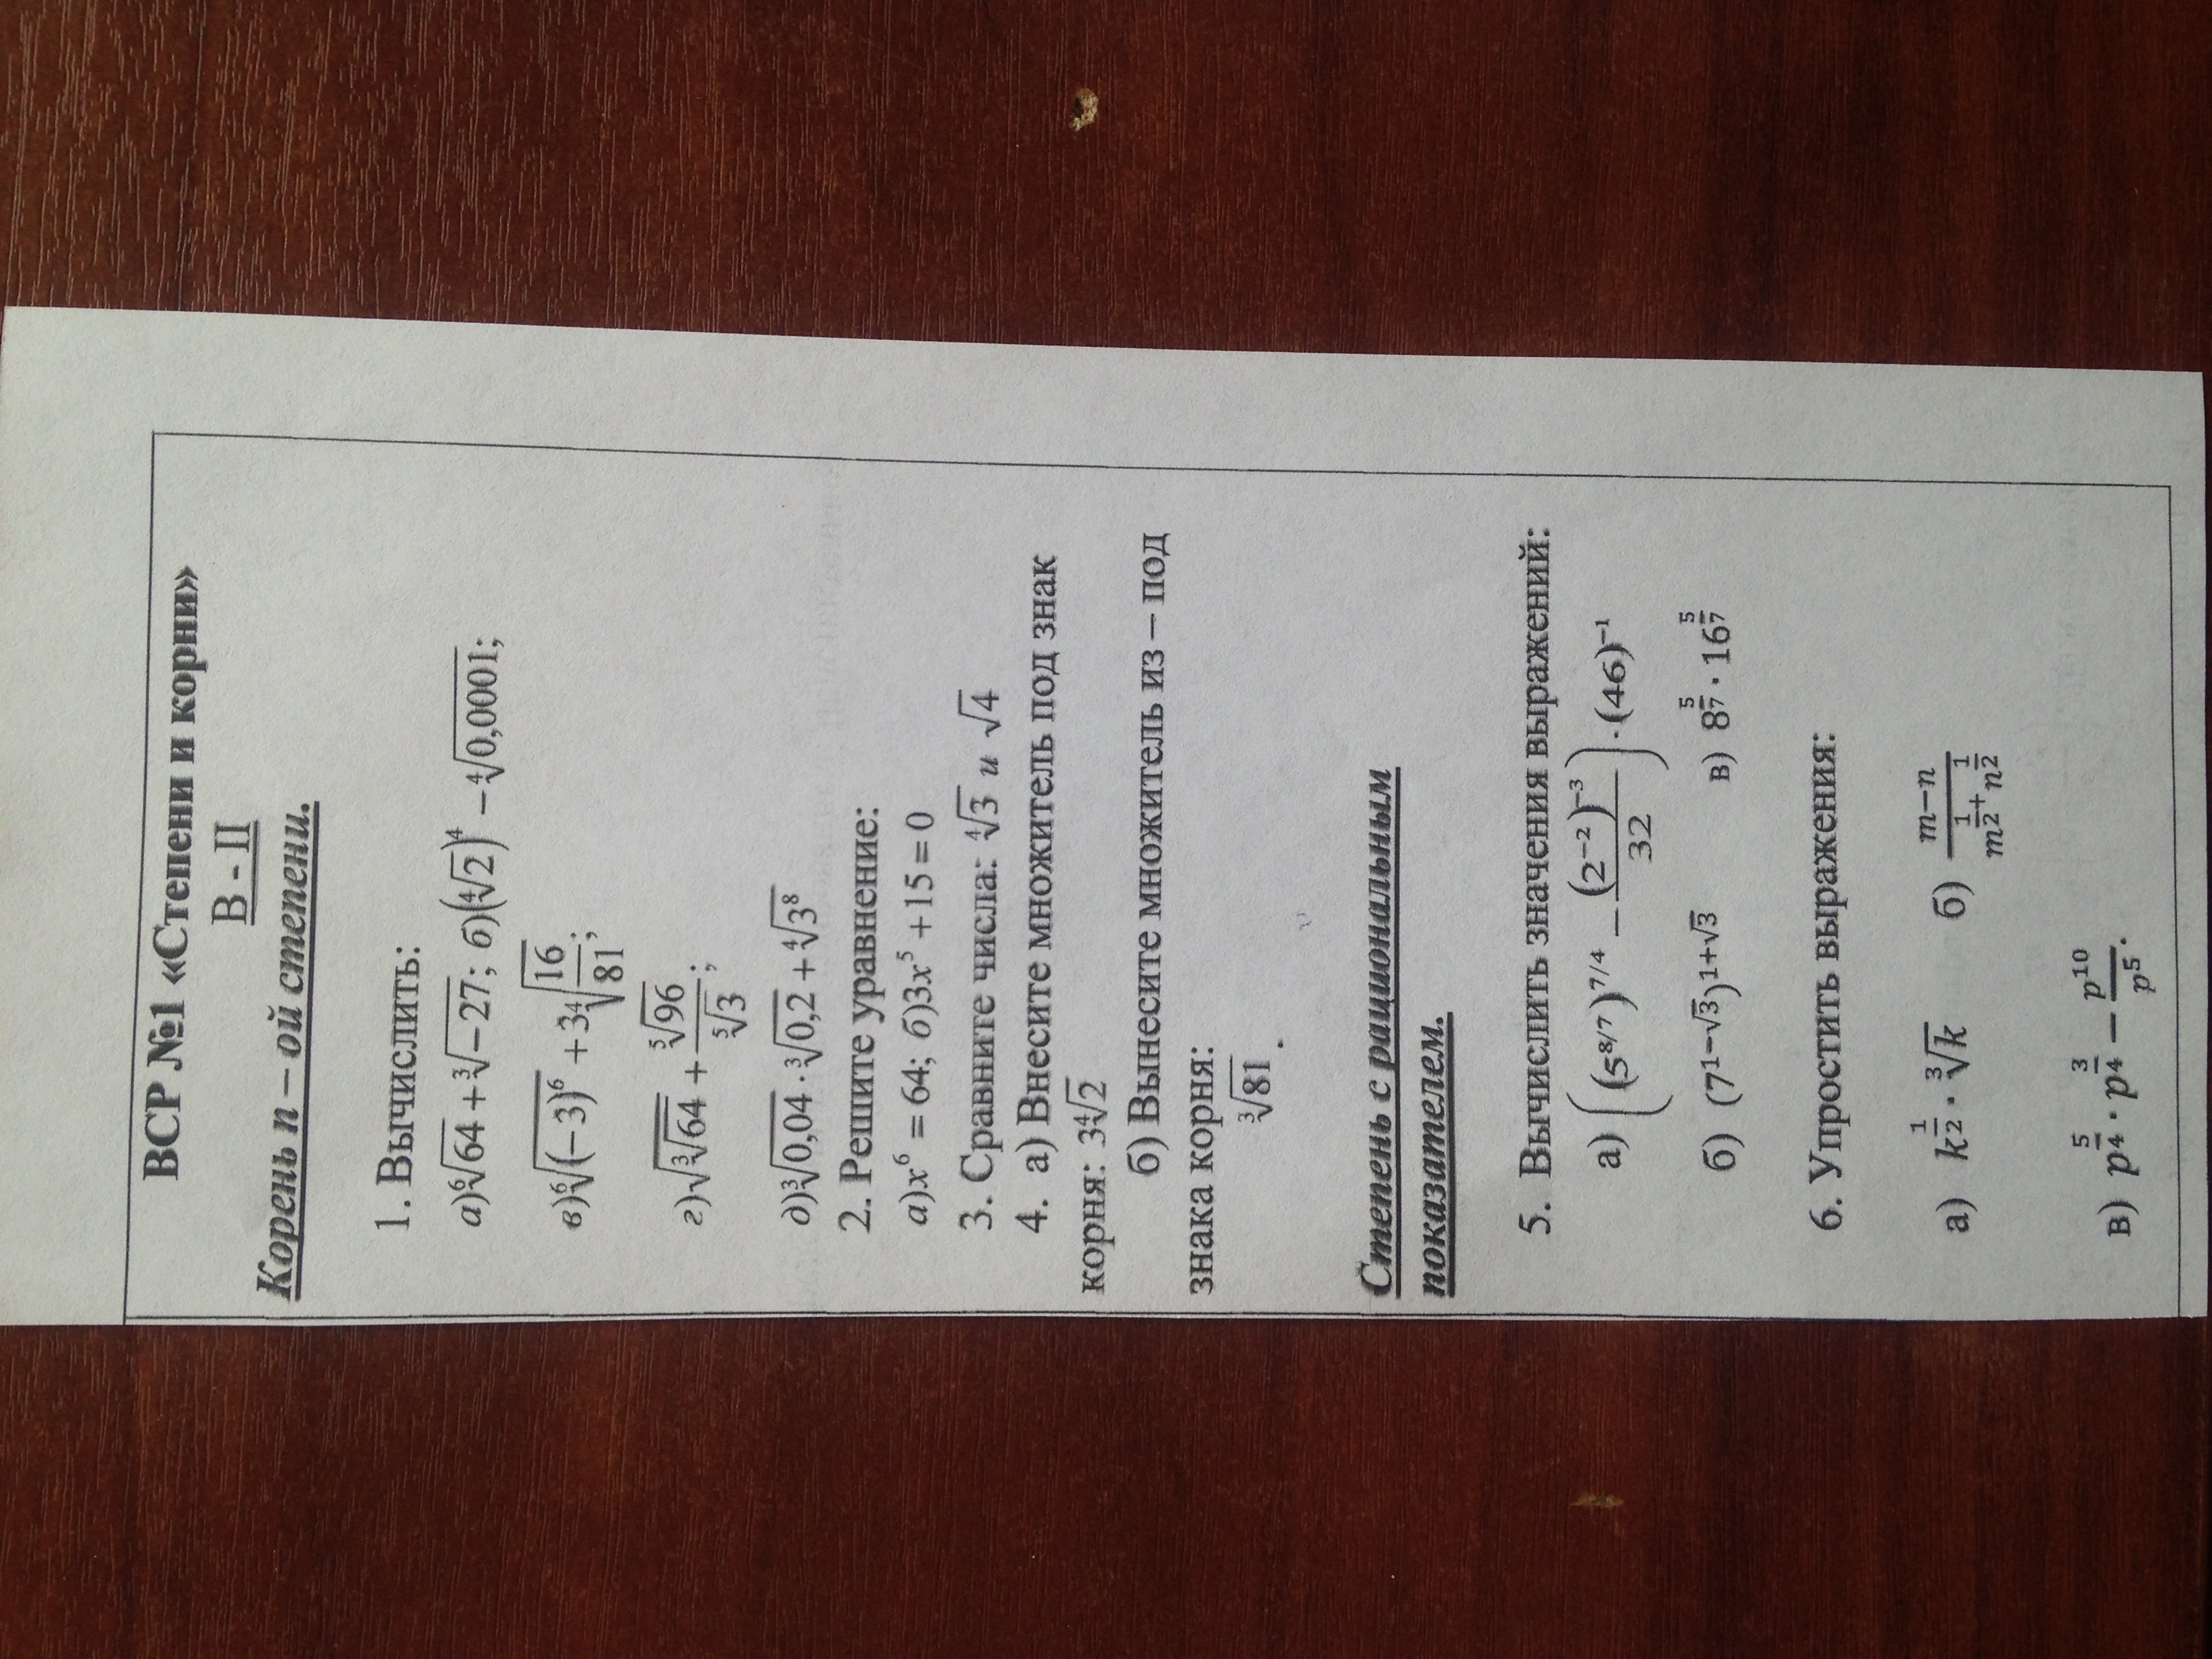 ВСР №1 «Степени и корни»
В - II
Корень n – ой степени.
1. Вычислить:
а) ⁶√64 + ³√−27; б) (⁴√2)⁴ − ⁴√0,0001;
в) ⁶√(−3)⁶ + 3 ⁴√(16/81);
г) √(³√64) + ⁵√96/⁵√3;
д) ³√0,04 · ³√0,2 + ⁴√3⁸
2. Решите уравнение:
а) x⁶ = 64; б) 3x⁵ + 15 = 0
3. Сравните числа: ⁴√3 и √4
4. а) Внесите множитель под знак
корня: 3⁴√2
б) Вынесите множитель из – под
знака корня:
³√81 .
Степень с рациональным
показателем.
5. Вычислить значения выражений:
а) ((5^(8/7))^(7/4) − (2⁻²)⁻³/32) · (46)⁻¹
б) (7^(1−√3))^(1+√3) в) 8^(5/7) · 16^(5/7)
6. Упростить выражения:
а) k^(1/2) · ³√k б) (m−n)/(m^(1/2)+n^(1/2))
в) p^(5/4) · p^(3/4) − p¹⁰/p⁵.